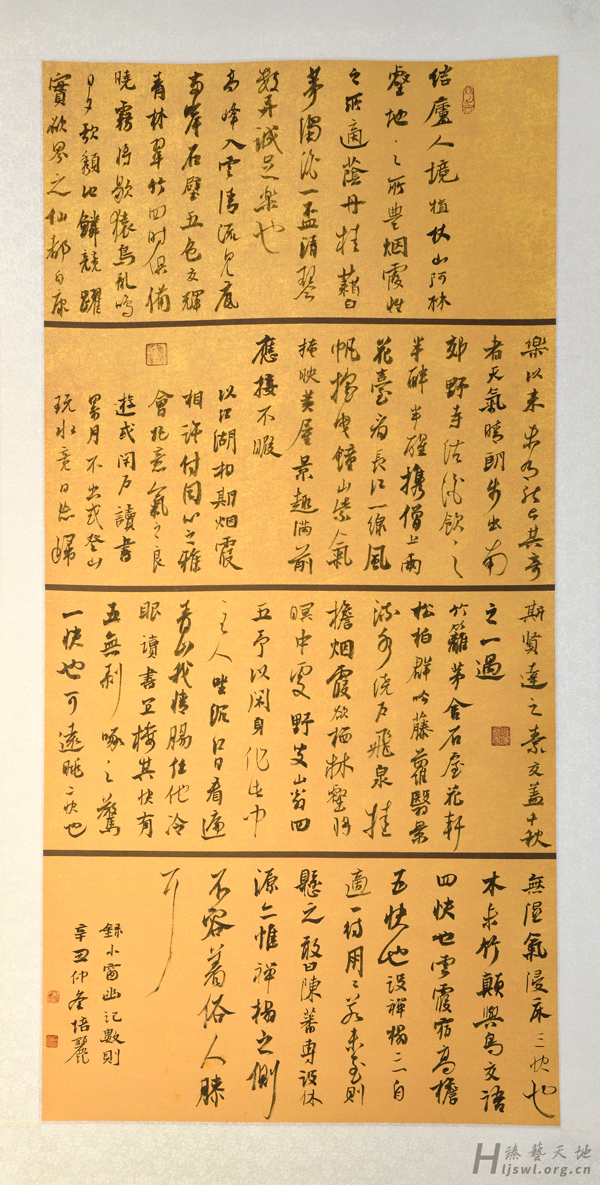 結廬人境植杖山阿林
壑地之所豐烟霞性
之所適蔭丹桂藉白
茅濁酒一盃清琴
數弄誠足樂也
高峰入雲清流見底
兩岸石壁五色交輝
青林翠竹四時俱備
曉霧將歇猿鳥亂鳴
日夕欲頹池鱗競躍
實欲界之仙都自康
樂以來未有能與其奇
者天氣晴朗步出南
郊野寺沽酒飲之
半醉半醒攜僧上雨
花臺看長江一線風
帆搖曳鐘山紫氣
掩映黃屋景趣滿前
應接不暇
以江湖相期烟霞
相許付同心之雅
會托意氣之良
遊或閉戶讀書
累月不出或登山
玩水竟日忘歸
斯賢達之素交蓋千秋
之一遇
竹籬茅舍石屋花軒
松柏群吟藤蘿翳景
流水繞戶飛泉挂
檐烟霞欲栖林壑將
暝中處野叟山翁四
五予以閑身作此中
主人坐沉紅日看遍
青山我情腸任他冷
眼讀書宜樓其快有
五無剝啄之驚
一快也可遠眺二快也
無濕氣浸床三快也
木末竹顛與鳥交語
四快也雲霞宿高檐
五快也設禪榻二一自
適一待朋朋若未至則
懸之敢曰陳蕃專設休
源亦惟禪榻之側
不容着俗人膝
耳
錄小窗幽記數則
辛丑仲冬培麗
臻藝天地
Hljswl.org.cn